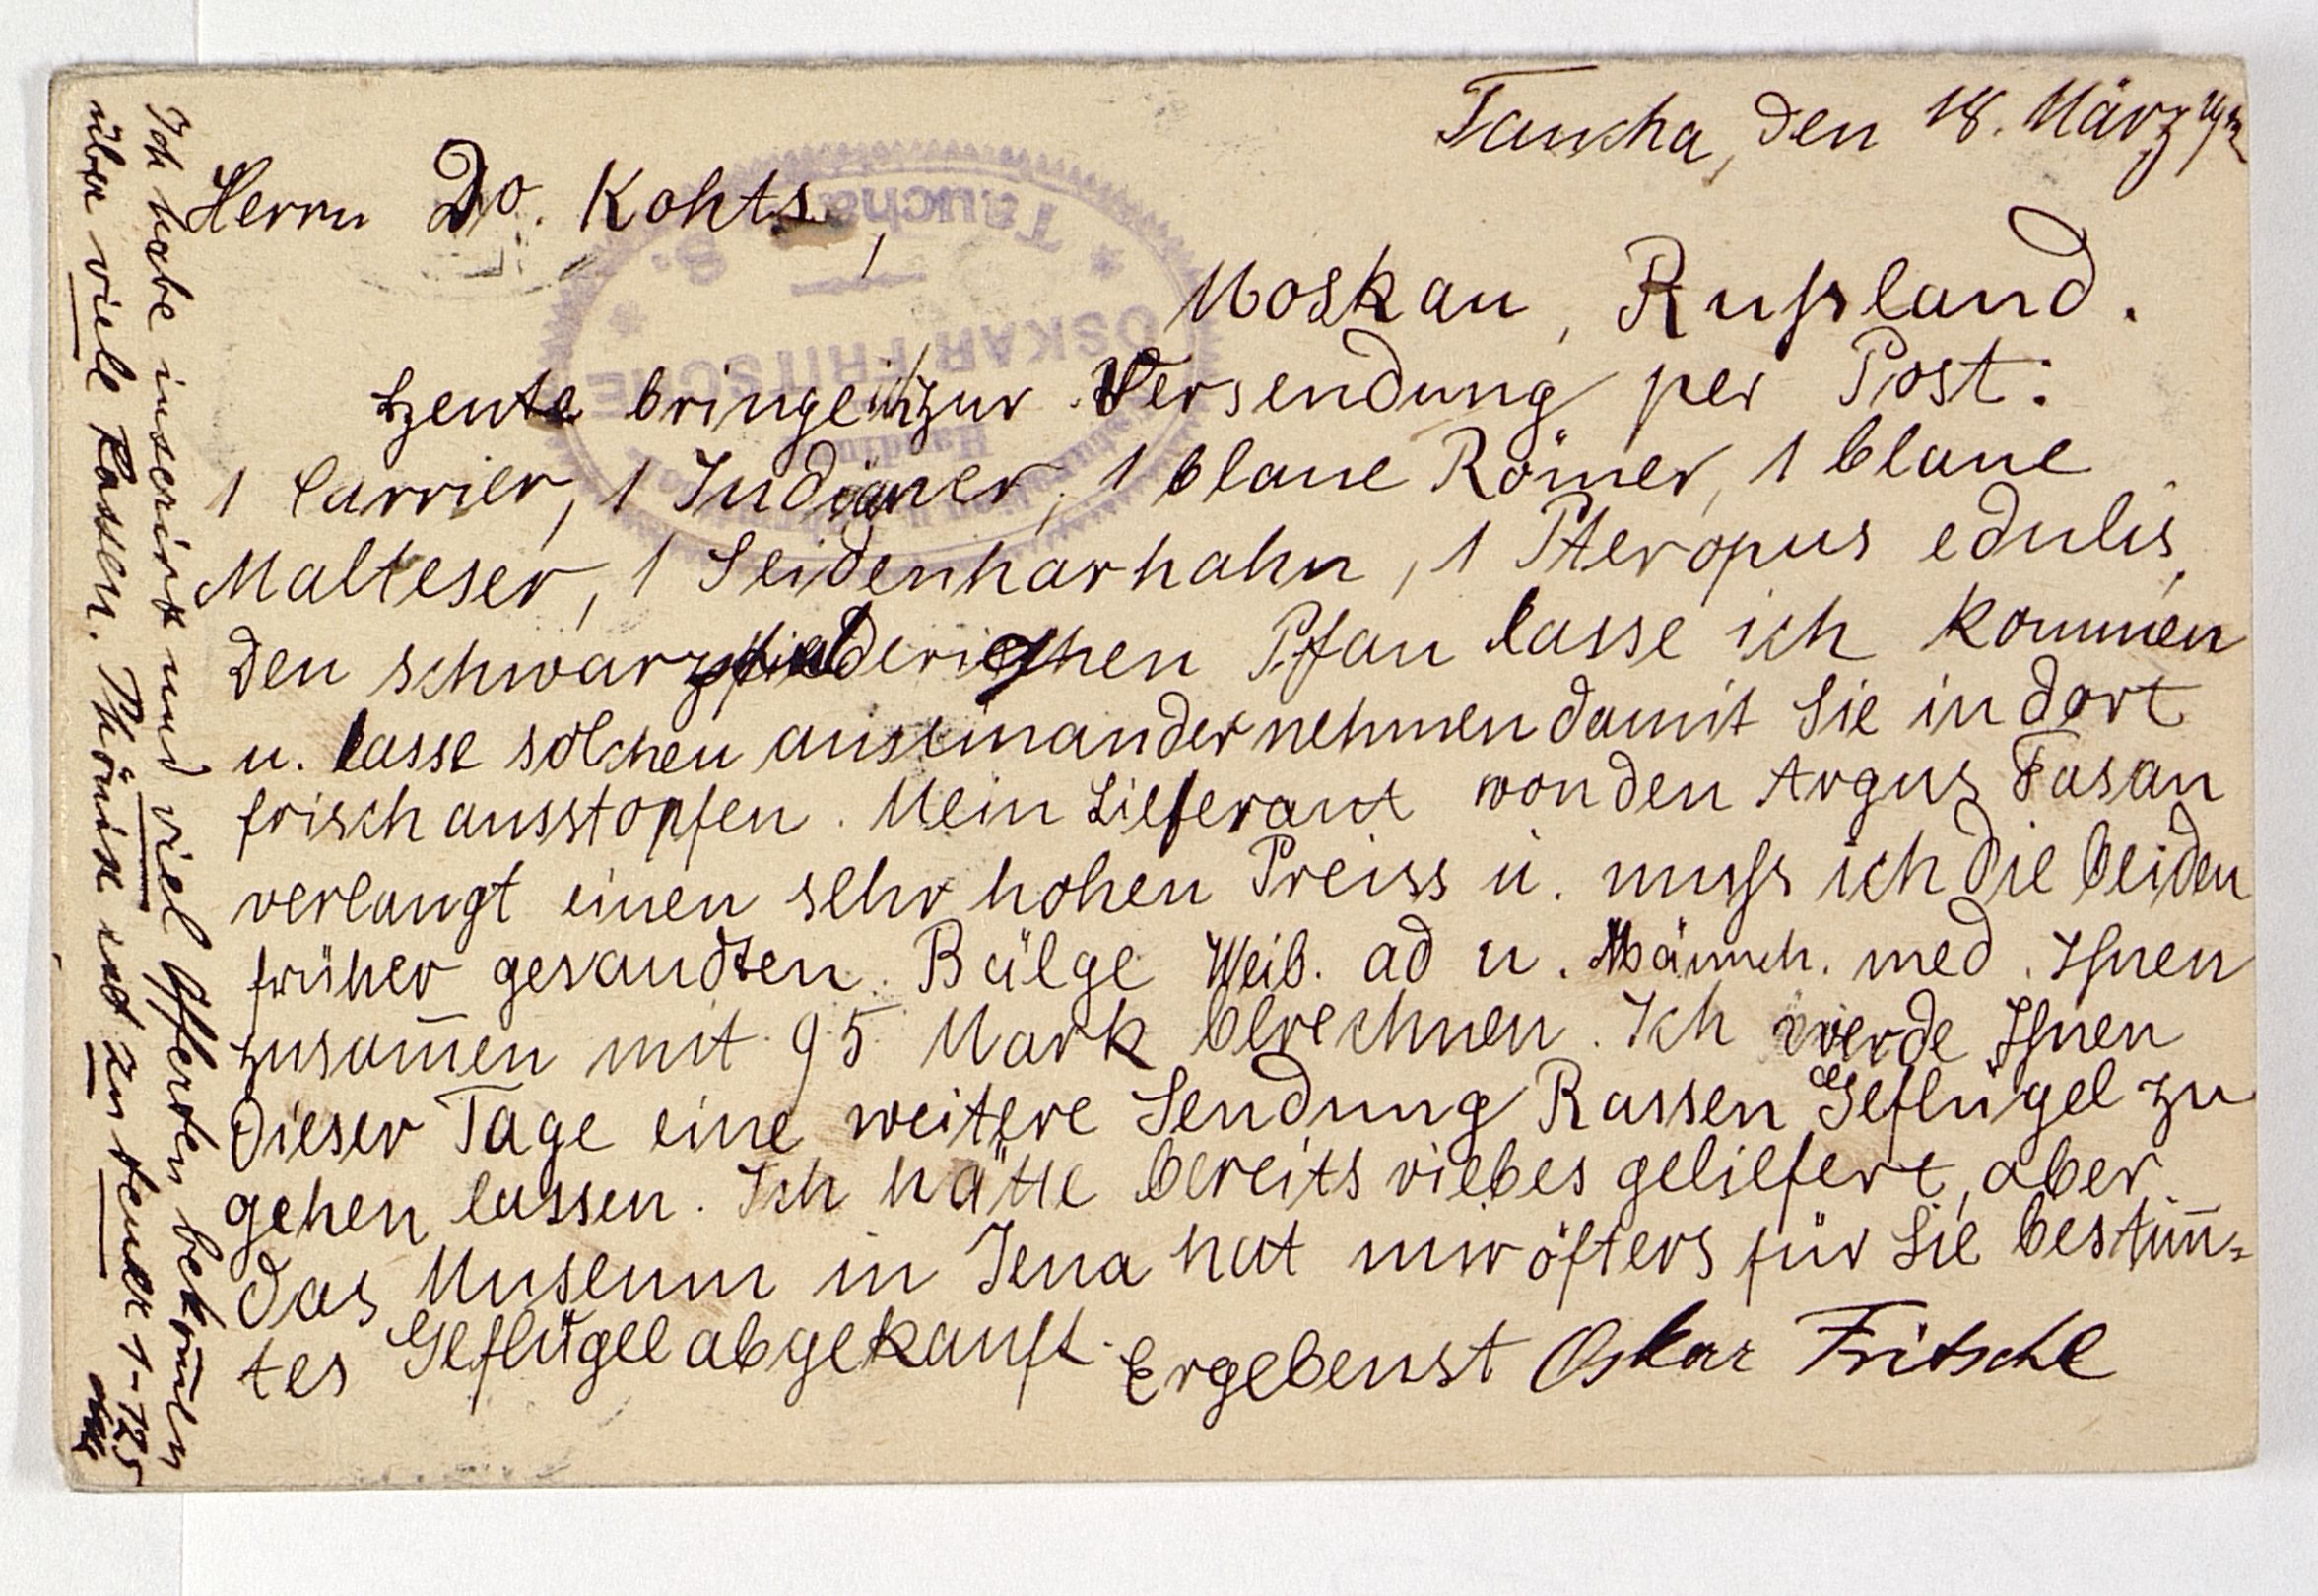 Taucha, den 18. März
Herrn Dr. Kohts,
Moskau, Russland.
Heute bringe ich zur Versendung per Post:
1 Carrier, 1 Indianer, 1 blaue Römer, 1 blaue
Malteser, 1 Seidenharhahn, 1 Pteropus edulis,
den schwarzflüderichen Pfau lasse ich kommen
u. lasse solchen auseinander nehmen damit Sie in dort
frisch ausstopfen. Mein Lieferant von den Argus Fasan
verlangt einen sehr hohen Preiss u. muss ich die beiden
früher gesandten Bälge Weib. ad u. Männch. med. Ihnen
zusam̄en mit 95 Mark berechnen. Ich werde Ihnen
dieser Tage eine weitere Sendung Rassen Geflügel zu
gehen lassen. Ich hätte bereits vieles geliefert, aber
das Museum in Jena hat mir öfters für Sie bestim̄=
tes Geflügel abgekauft. Ergebenst Oskar Fritsche
Ich habe inserirt und viel Offerten bekom̄en
über viele Rassen. Phönix ist zu teuer 1-125
Mk
OSKAR FRITSCHE
Taucha
Handlung